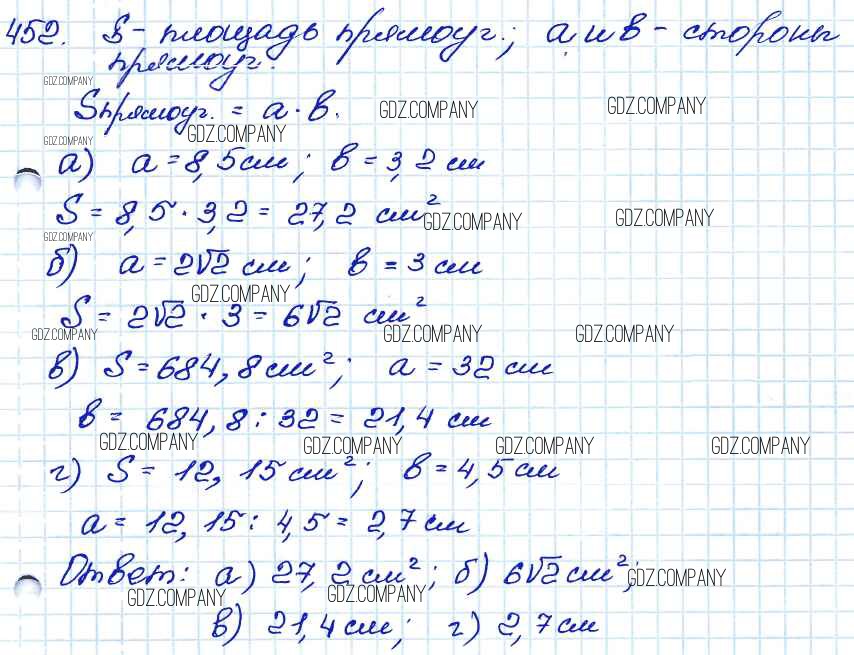 452. S - площадь прямоуг.; a и b - стороны
прямоуг.
GDZ.COMPANY
Sпрямоуг. = a · b. GDZ.COMPANY GDZ.COMPANY
GDZ.COMPANY GDZ.COMPANY
а) a = 8,5 см; b = 3,2 см
S = 8,5 · 3,2 = 27,2 см² GDZ.COMPANY GDZ.COMPANY
GDZ.COMPANY
б) a = 2√2 см; b = 3 см
GDZ.COMPANY
S = 2√2 · 3 = 6√2 см²
GDZ.COMPANY GDZ.COMPANY GDZ.COMPANY
в) S = 684,8 см²; a = 32 см
b = 684,8 : 32 = 21,4 см
GDZ.COMPANY GDZ.COMPANY GDZ.COMPANY GDZ.COMPANY
г) S = 12,15 см²; b = 4,5 см
a = 12,15 : 4,5 = 2,7 см
Ответ: а) 27,2 см²; б) 6√2 см²; GDZ.COMPANY
GDZ.COMPANY GDZ.COMPANY
в) 21,4 см; г) 2,7 см